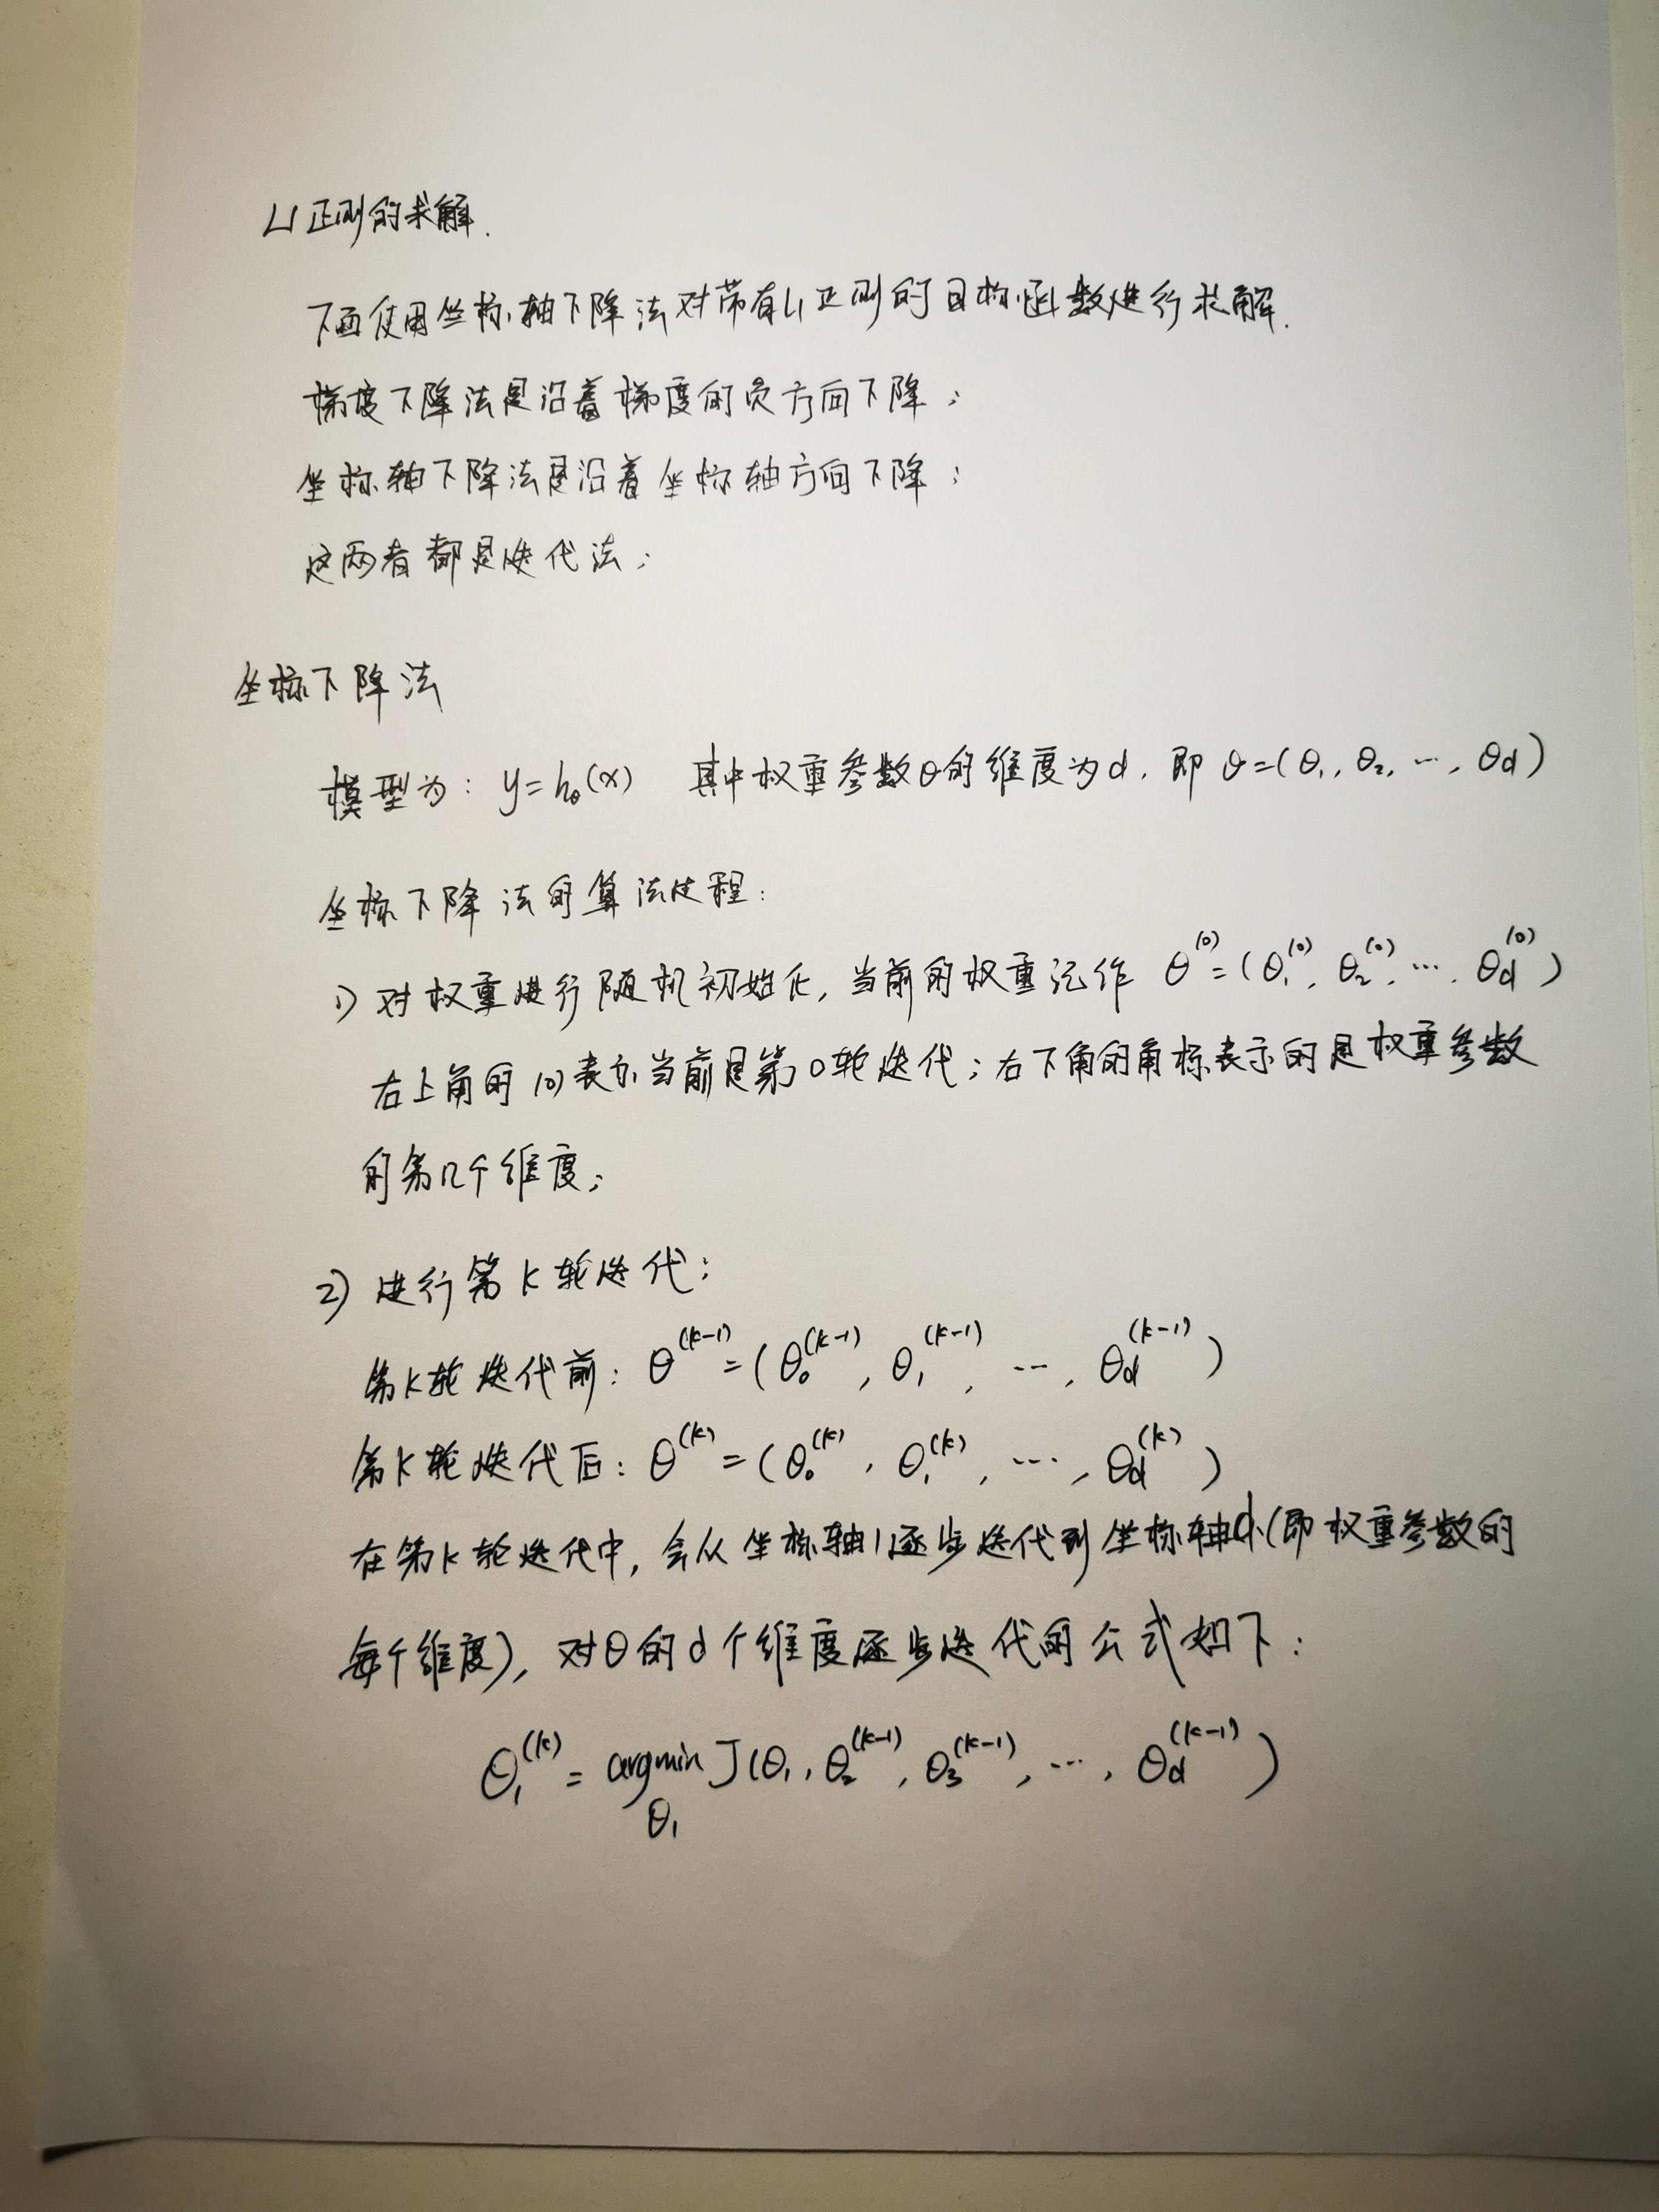 L1正则的求解.
下面使用坐标轴下降法对带有L1正则的目标函数进行求解.
梯度下降法是沿着梯度的负方向下降;
坐标轴下降法是沿着坐标轴方向下降;
这两者都是迭代法;
坐标下降法
模型为: y=hθ(x) 其中权重参数θ的维度为d, 即 θ=(θ₁, θ₂, ⋯, θd)
坐标下降法的算法过程:
1) 对权重进行随机初始化, 当前的权重记作 θ⁽⁰⁾=(θ₁⁽⁰⁾, θ₂⁽⁰⁾, ⋯, θd⁽⁰⁾)
右上角的(0)表示当前是第0轮迭代; 右下角的角标表示的是权重参数
的第几个维度;
2) 进行第k轮迭代;
第k轮迭代前: θ⁽ᵏ⁻¹⁾=(θ₀⁽ᵏ⁻¹⁾, θ₁⁽ᵏ⁻¹⁾, ⋯, θd⁽ᵏ⁻¹⁾)
第k轮迭代后: θ⁽ᵏ⁾=(θ₀⁽ᵏ⁾, θ₁⁽ᵏ⁾, ⋯, θd⁽ᵏ⁾)
在第k轮迭代中, 会从坐标轴1逐步迭代到坐标轴d(即权重参数的
每个维度), 对θ的d个维度逐步迭代的公式如下:
θ₁⁽ᵏ⁾ = argmin J(θ₁, θ₂⁽ᵏ⁻¹⁾, θ₃⁽ᵏ⁻¹⁾, ⋯, θd⁽ᵏ⁻¹⁾)
θ₁